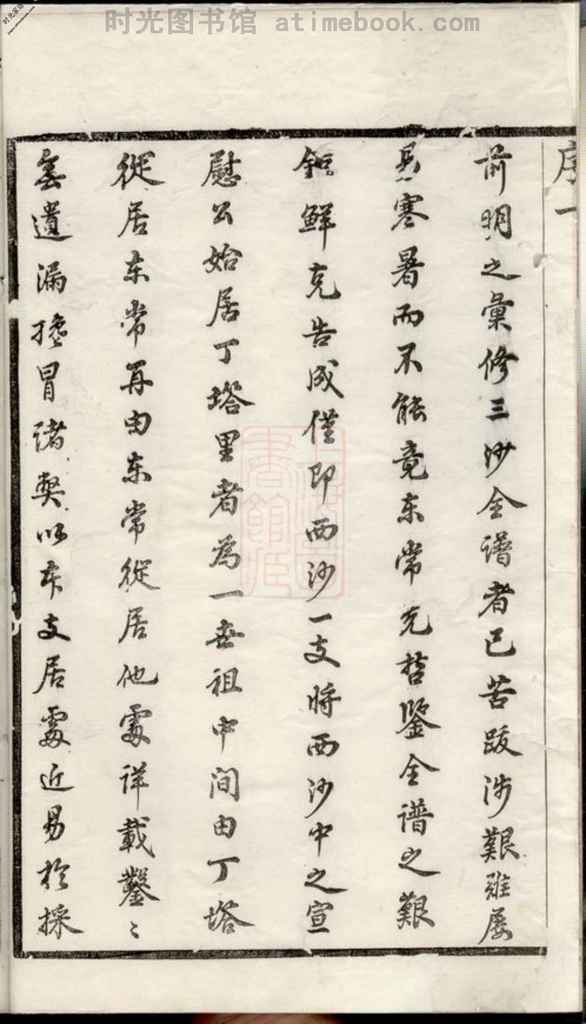 时光图书馆 atimebook.com
序一
前明之彙修三沙全譜者已苦跋涉艱雖屡
易寒暑而不能竟东常克哲鑒全谱之艱
鉅鮮克告成僅即西沙一支將西沙中之宣
慰公始居丁塔里者為一世祖中间由丁塔
從居东常再由东常從居他處详載鑿〻
無遺漏搀冒诸獘以本支居處近易於採